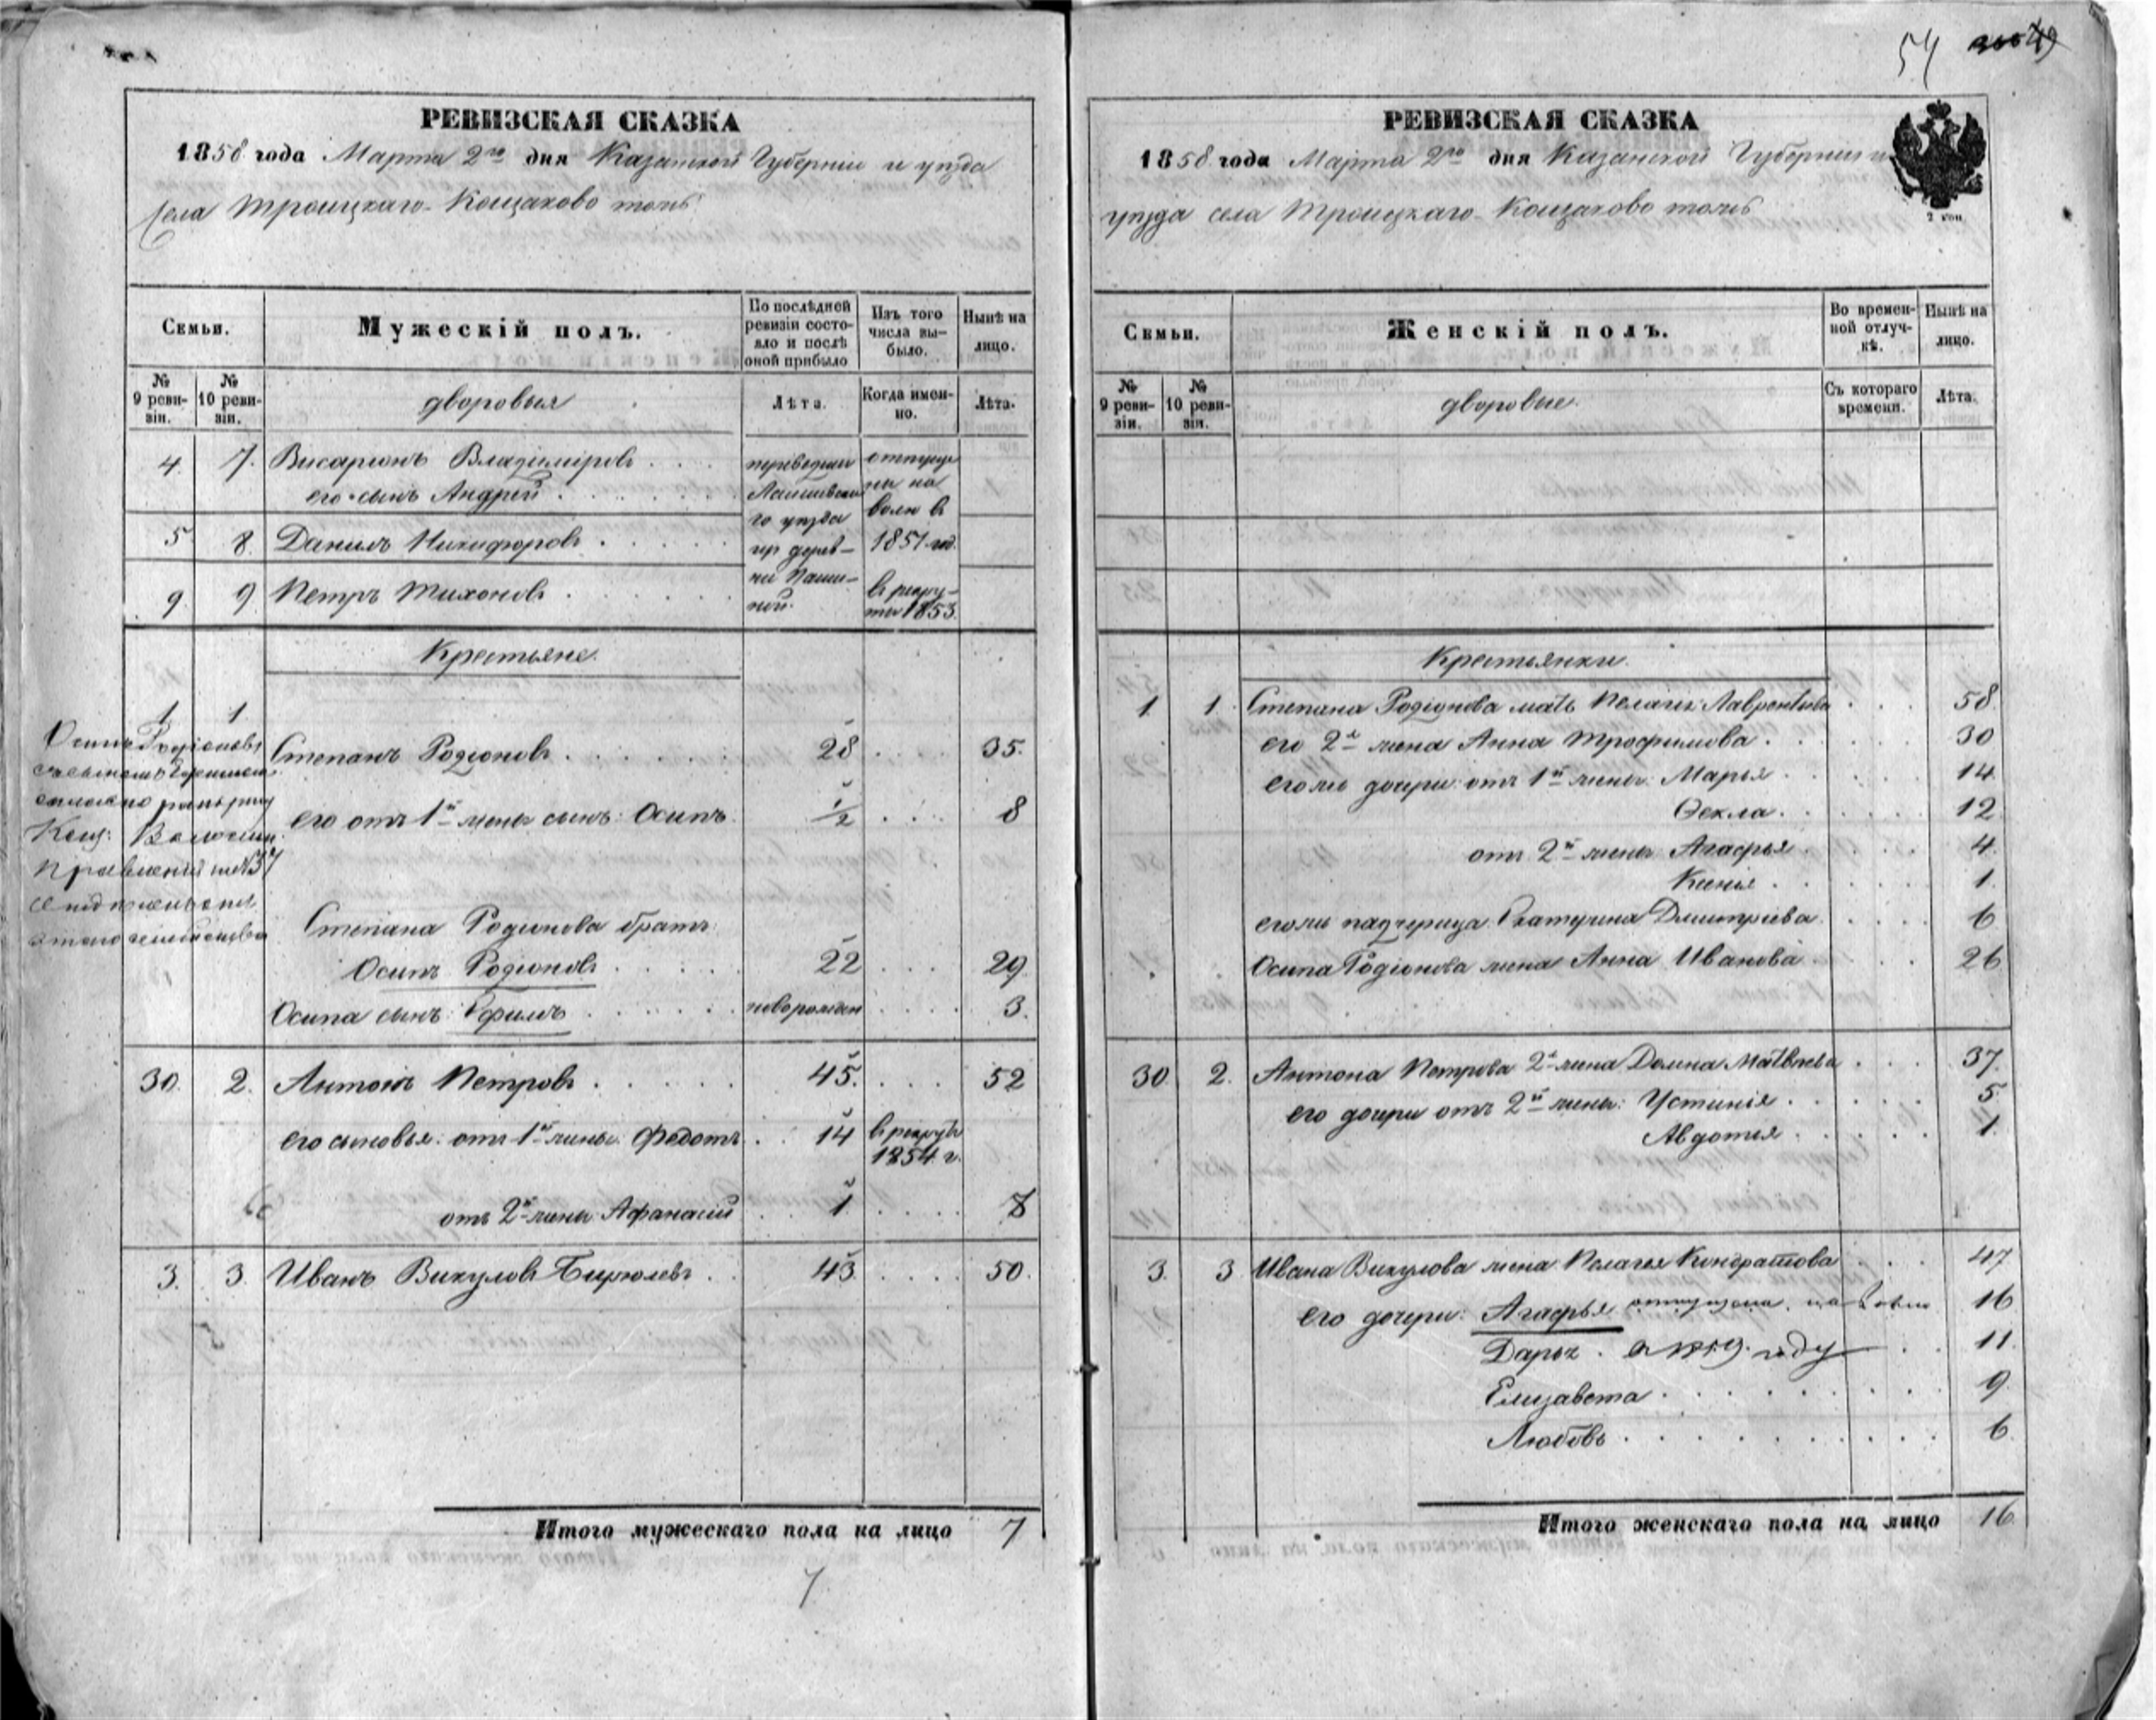 54
РЕВИЗСКАЯ СКАЗКА
1858 года Марта 2го дня Казанской Губерніи и уѣзда
села Троицкаго-Кощаково тожъ
Семьи.
Мужескій полъ.
По послѣдней ревизіи состояло и послѣ оной прибыло
Изъ того числа выбыло.
Нынѣ на лицо.
№ 9 ревизіи.
№ 10 ревизіи.
дворовыя
Лѣта.
Когда именно.
Лѣта.
4. 7. Висаріонъ Владиміровъ
его сынъ Андрей
5 8. Данилъ Никифоровъ
9. 9. Петръ Тихоновъ
переведены
Лаишевска
го уѣзда
въ дерев-
ни
отпуще
ны на
волю въ
1851 год.
въ рекру-
ты 1853.
Крестьяне.
1 1
Осипъ Родіоновъ
Степанъ Родіоновъ 28 35.
его отъ 1й жены сынъ: Осипъ ½ 8
Степана Родіонова братъ
Осипъ Родіоновъ 22 29.
Осипа сынъ: Ефимъ новорожден 3.
30. 2. Антонъ Петровъ 45. 52
его сыновья: отъ 1й жены Федотъ 14 въ рекруты
1854 г.
отъ 2й жены Афанасій 1 8
3. 3. Иванъ Викуловъ Бирюлевъ 43 50.
Итого мужескаго пола на лицо 7
7.
РЕВИЗСКАЯ СКАЗКА
1858 года Марта 2го дня Казанской Губерніи и
уѣзда села Троицкаго-Кощаково тожъ
2 коп
Семьи.
Женскій полъ.
Во временной отлучкѣ.
Нынѣ на лицо.
№ 9 ревизіи.
№ 10 ревизіи.
дворовые.
Съ котораго времени.
Лѣта.
Крестьянки.
1 1 Степана Родіонова мать Пелагея Лаврентьева 58.
его 2я жена Анна Трофимова 30
его же дочери: отъ 1й жены: Марья 14
Ѳекла 12
отъ 2й жены Агафья 4.
Ксенія 1.
его же падчерица Екатерина Дмитріева 6
Осипа Родіонова жена Анна Иванова 26
30 2. Антона Петрова 2я жена Домна Матвѣева 37.
его дочери отъ 2й жены: Устинія 5.
Авдотья 1.
3. 3 Ивана Викулова жена Пелагея Кондратова 47
его дочери: Агафья отпущена на волю 16
Дарья в 1859 году 11
Елизавета 9
Любовь 6
Итого женскаго пола на лицо 16.